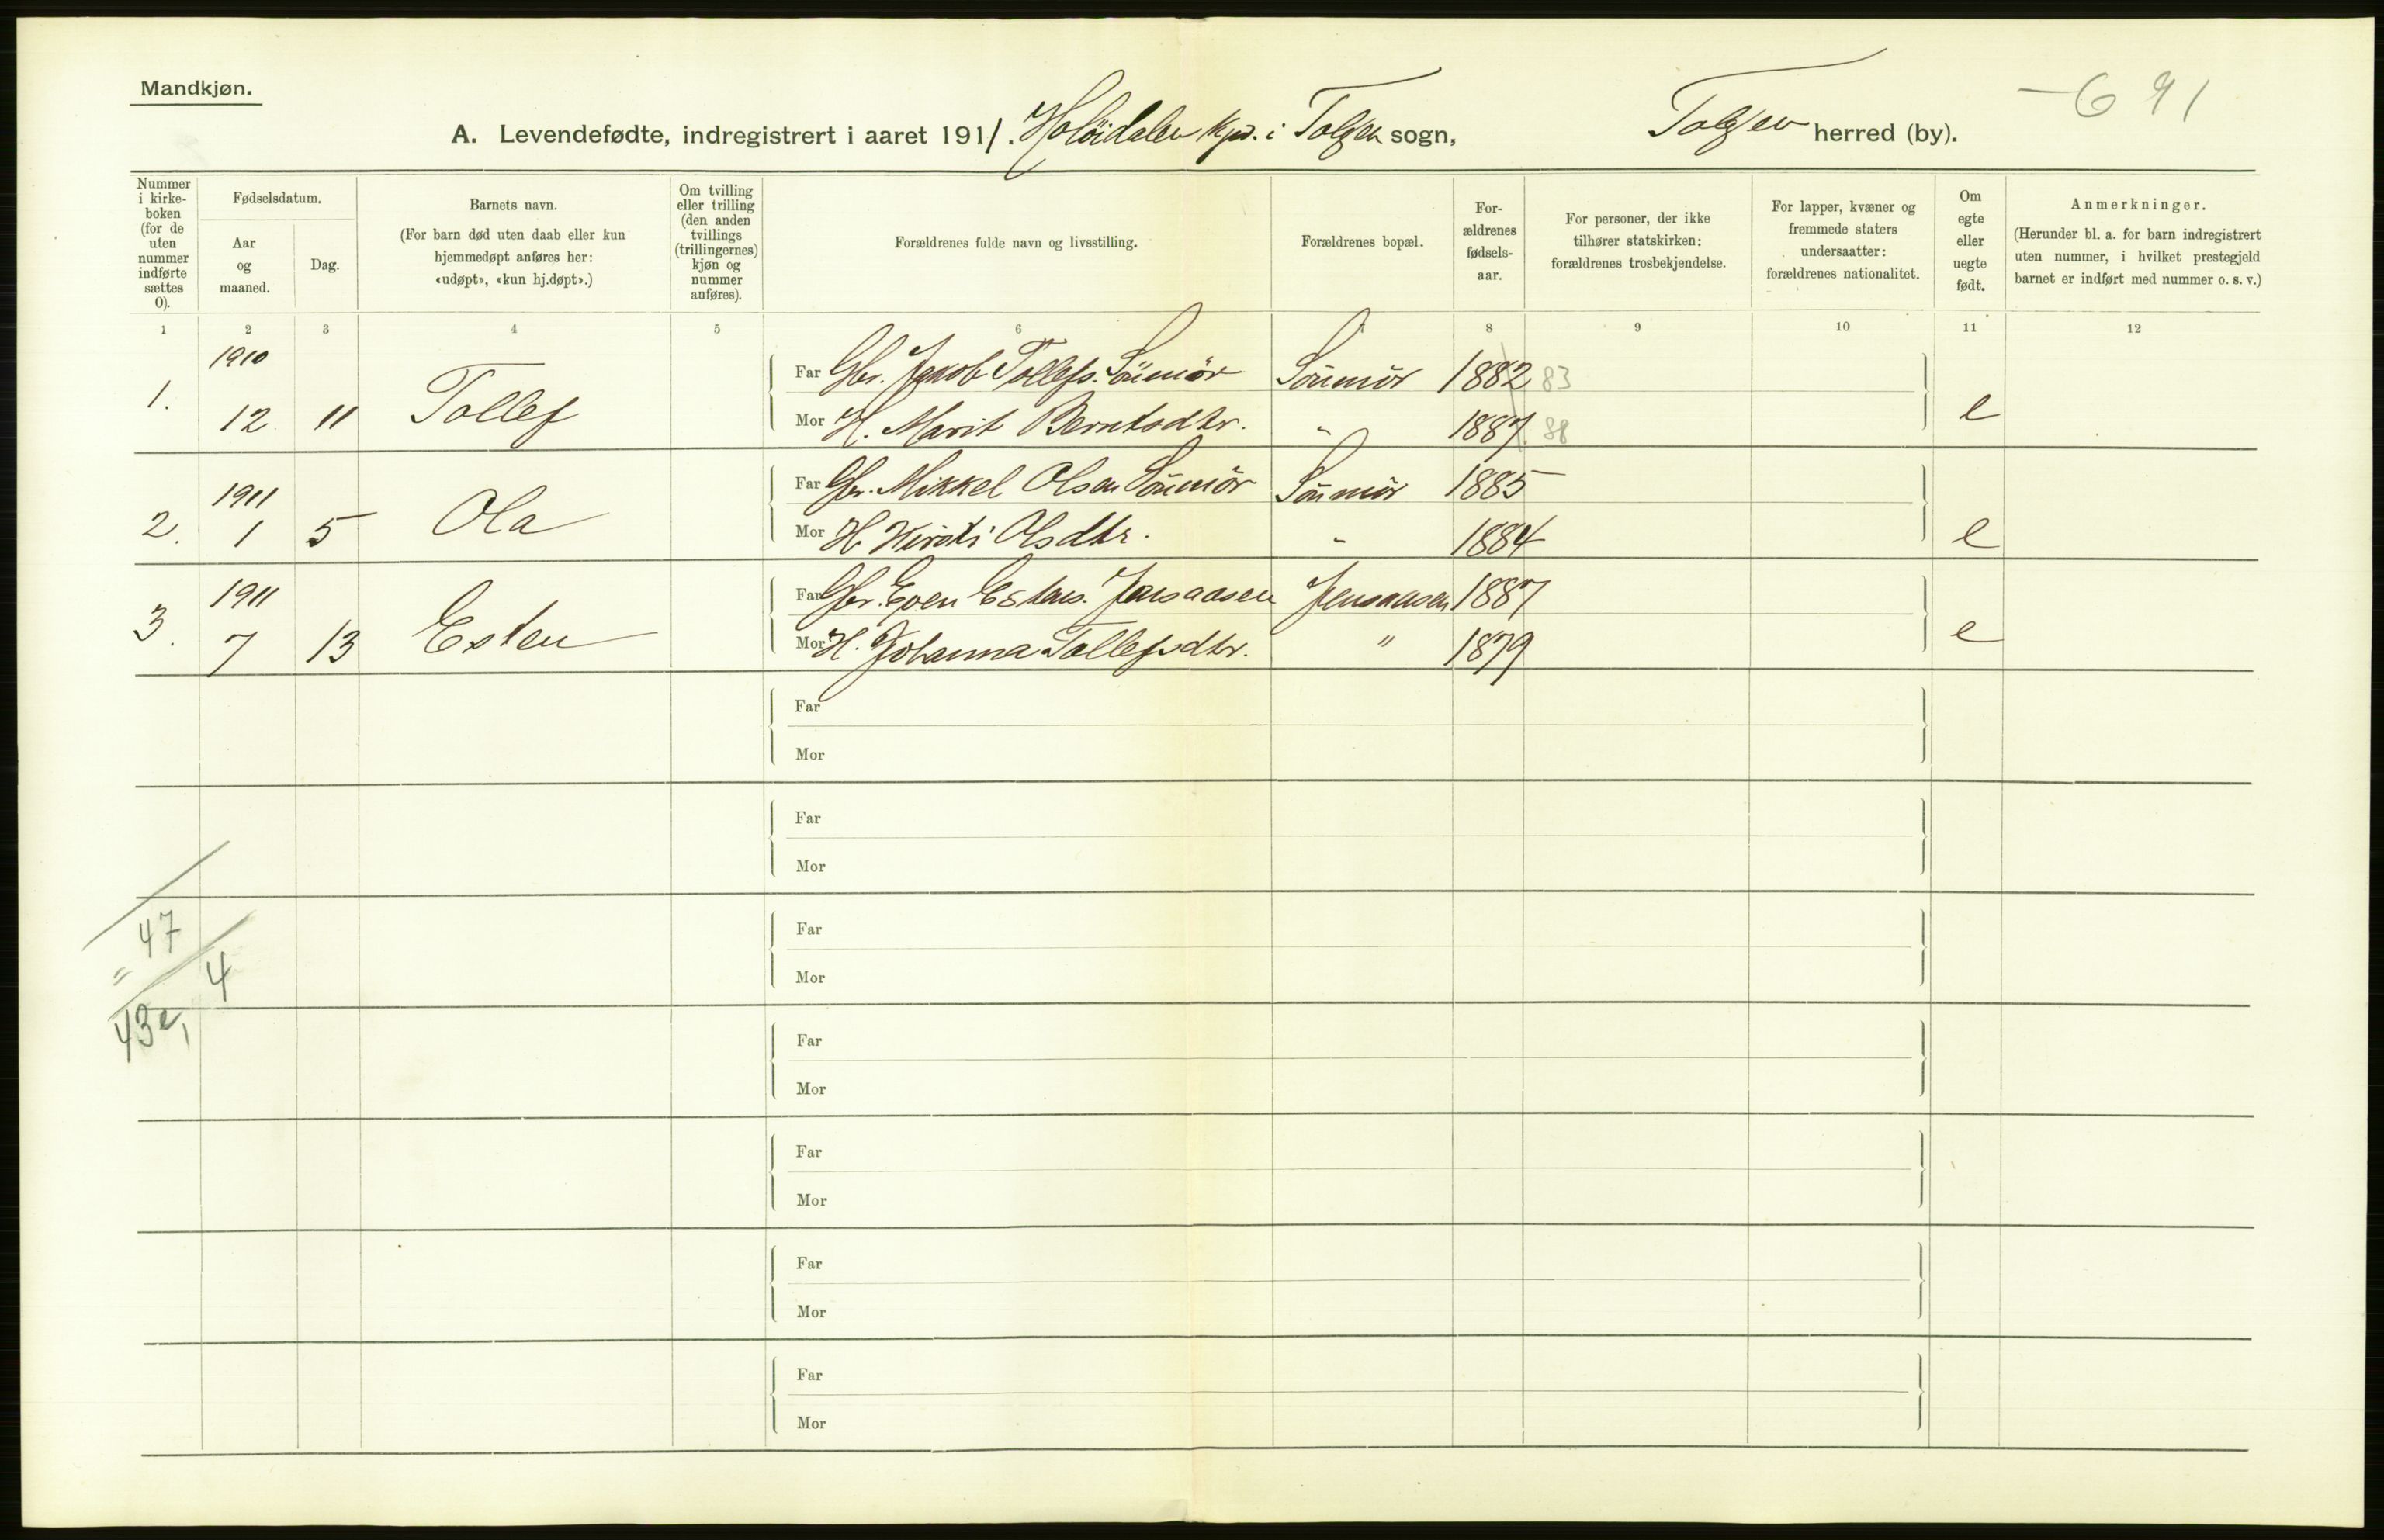 Mandkjøn.
- 691
A. Levendefødte, indregistrert i aaret 1911. Holöidalen kps. i Tolgen sogn, Tolgen herred (by).
Nummer i kirke-boken (for de uten nummer indførte sættes 0).
Fødselsdatum.
Aar og maaned.
Dag.
Barnets navn.
(For barn død uten daab eller kun hjemmedøpt anføres her: «udøpt», «kun hj.døpt».)
Om tvilling eller trilling (den anden tvillings (trillingernes) kjøn og nummer anføres).
Forældrenes fulde navn og livsstilling.
Forældrenes bopæl.
For-ældrenes fødsels-aar.
For personer, der ikke tilhører statskirken: forældrenes trosbekjendelse.
For lapper, kvæner og fremmede staters undersaatter: forældrenes nationalitet.
Om egte eller uegte født.
Anmerkninger.
(Herunder bl. a. for barn indregistrert uten nummer, i hvilket prestegjeld barnet er indført med nummer o. s. v.)
1 2 3 4 5 6 8 9 10 11 12
1910
Far Gbr. Jakob Tollefs. Söumör Söumör 1882 83
1. 12 11 Tollef e
Mor H. Marit Berntsdtr. " 1887. 88
1911
Far Gbr. Mikkel Olsen Söumör Söumör 1885
2. 1 5 Ola e
Mor H. Kirsti Olsdtr. " 1884
1911
Far Gbr. Even Estens. Jensaasen Jensaasen 1887
3. 7 13 Esten e
Mor H. Johanna Tollefsdtr. " 1879
Far
Mor
Far
Mor
47
Far
= 4
Mor
43 e,
Far
Mor
Far
Mor
Far
Mor
Far
Mor